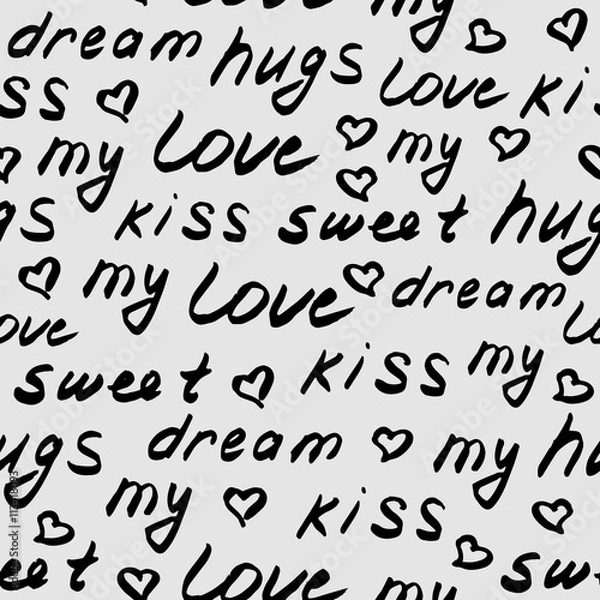 love my
dream hugs
ss love kis
my love my
gs kiss sweet hug
my love dream
ove kiss my lo
sweet
ugs dream my hu
my kiss
eet love my swe